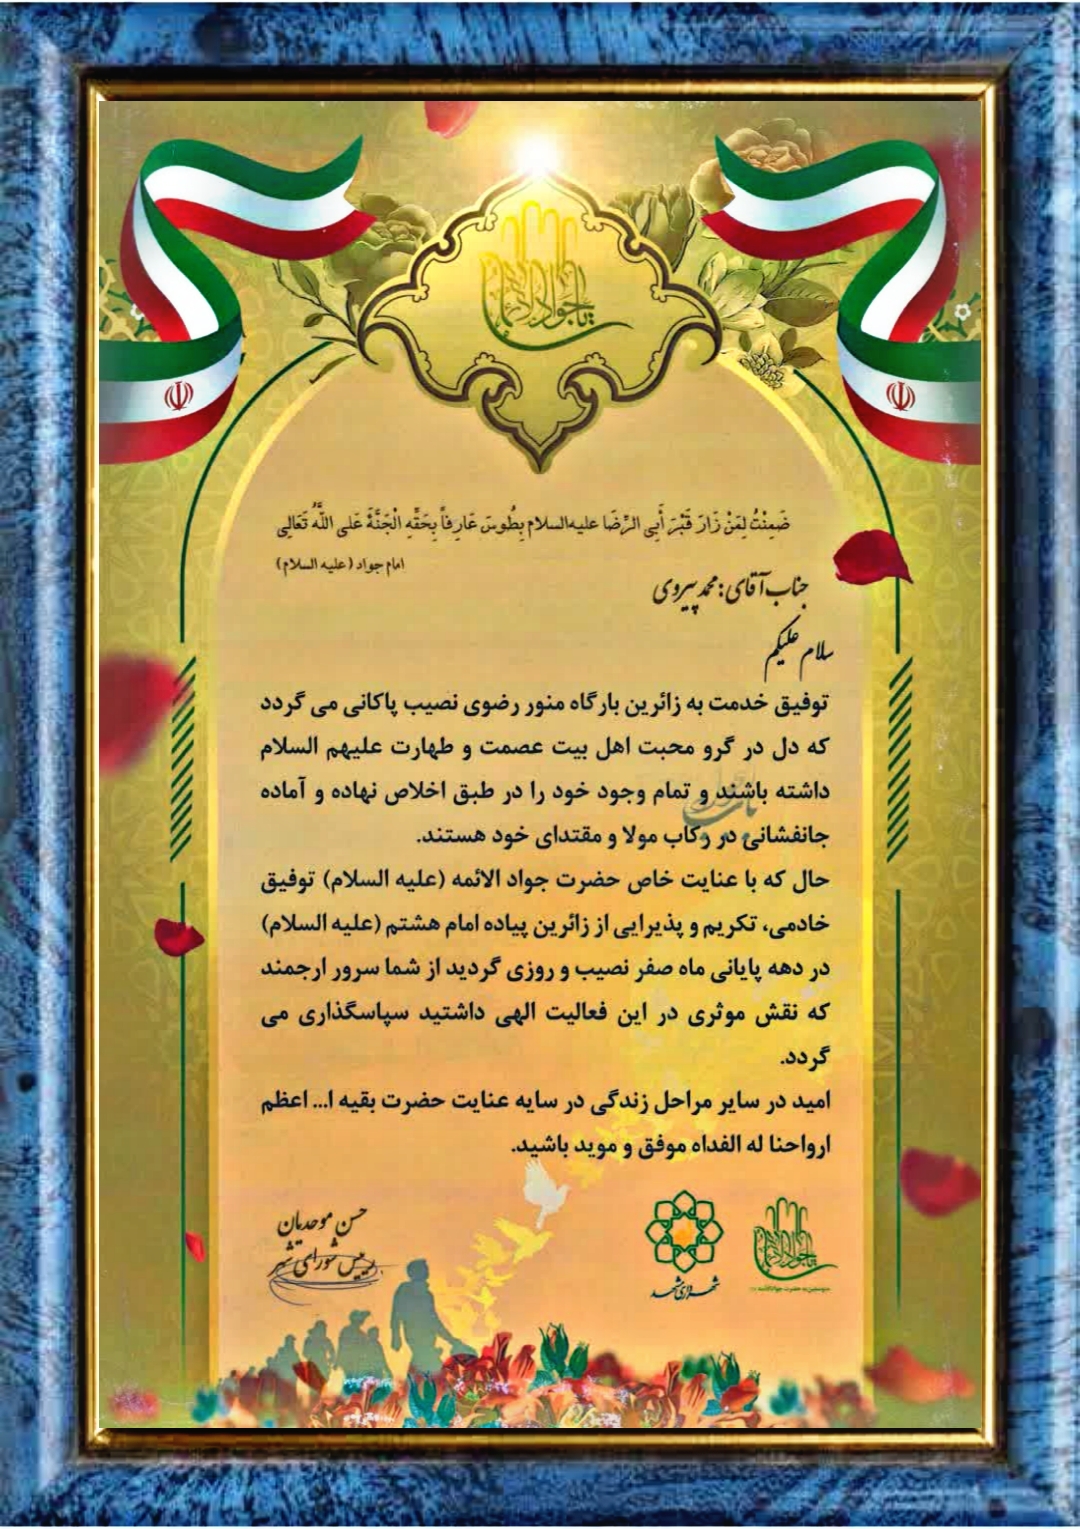 یا جواد الائمه
ضَمِنْتُ لِمَنْ زَارَ قَبْرَ أَبِي الرِّضَا علیه‌السلام بِطُوسَ عَارِفاً بِحَقِّهِ الْجَنَّةَ عَلَى اللَّهِ تَعَالِى
امام جواد (علیه السلام)
جناب آقای: محمد پیروی
سلام علیکم
توفیق خدمت به زائرین بارگاه منور رضوی نصیب پاکانی می گردد
که دل در گرو محبت اهل بیت عصمت و طهارت علیهم السلام
داشته باشند و تمام وجود خود را در طبق اخلاص نهاده و آماده
جانفشانی در رکاب مولا و مقتدای خود هستند.
حال که با عنایت خاص حضرت جواد الائمه (علیه السلام) توفیق
خادمی، تکریم و پذیرایی از زائرین پیاده امام هشتم (علیه السلام)
در دهه پایانی ماه صفر نصیب و روزی گردید از شما سرور ارجمند
که نقش موثری در این فعالیت الهی داشتید سپاسگذاری می
گردد.
امید در سایر مراحل زندگی در سایه عنایت حضرت بقیه ا... اعظم
ارواحنا له الفداه موفق و موید باشید.
حسن موحدیان
رییس شورای شهر
شهرداری مشهد
یا جواد الائمه